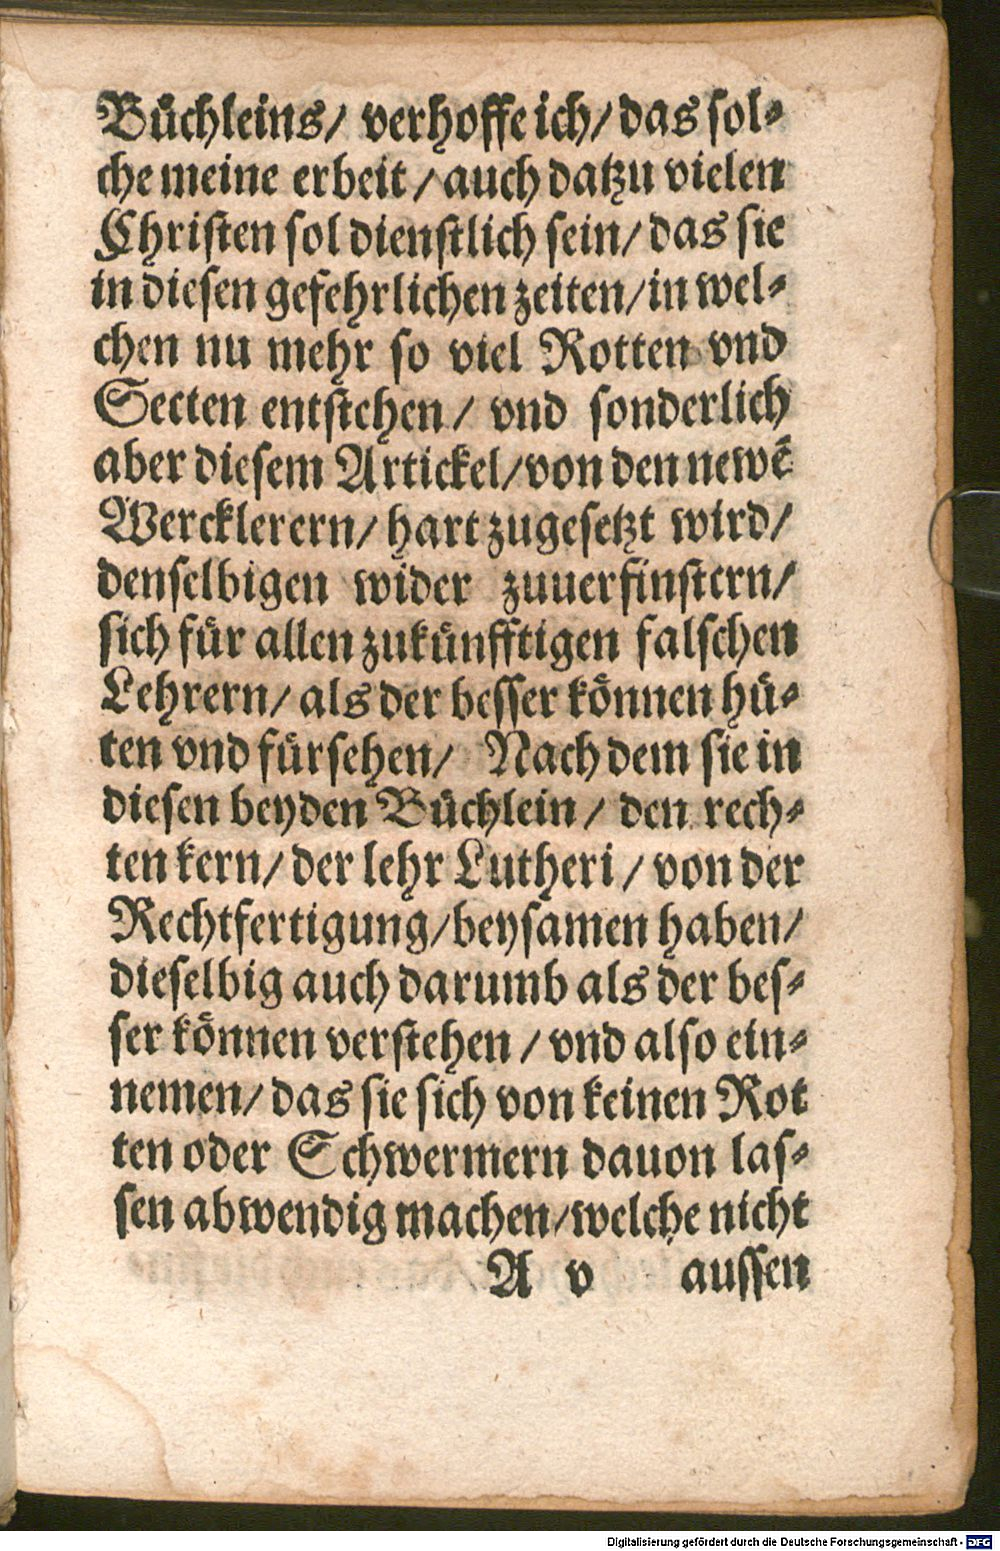 Bůchleins/ verhoffe ich/ das sol⸗
che meine erbeit / auch datzu vielen
Christen sol dienstlich sein/ das sie
in diesen gefehrlichen zeiten/ in wel⸗
chen nu mehr so viel Rotten vnd
Secten entstehen / vnd sonderlich
aber diesem Artickel/ von den newẽ
Wercklerern/ hart zugesetzt wird/
denselbigen wider zuuerfinstern/
sich für allen zukünfftigen falschen
Lehrern/ als der besser können hü⸗
ten vnd fürsehen/ Nach dem sie in
diesen beyden Büchlein / den rech⸗
ten kern/ der lehr Lutheri / von der
Rechtfertigung/ beysamen haben/
dieselbig auch darumb als der bes⸗
ser können verstehen / vnd also ein⸗
nemen/ das sie sich von keinen Rot
ten oder Schwermern dauon las⸗
sen abwendig machen/ welche nicht
A v aussen
Digitalisierung gefördert durch die Deutsche Forschungsgemeinschaft - DFG